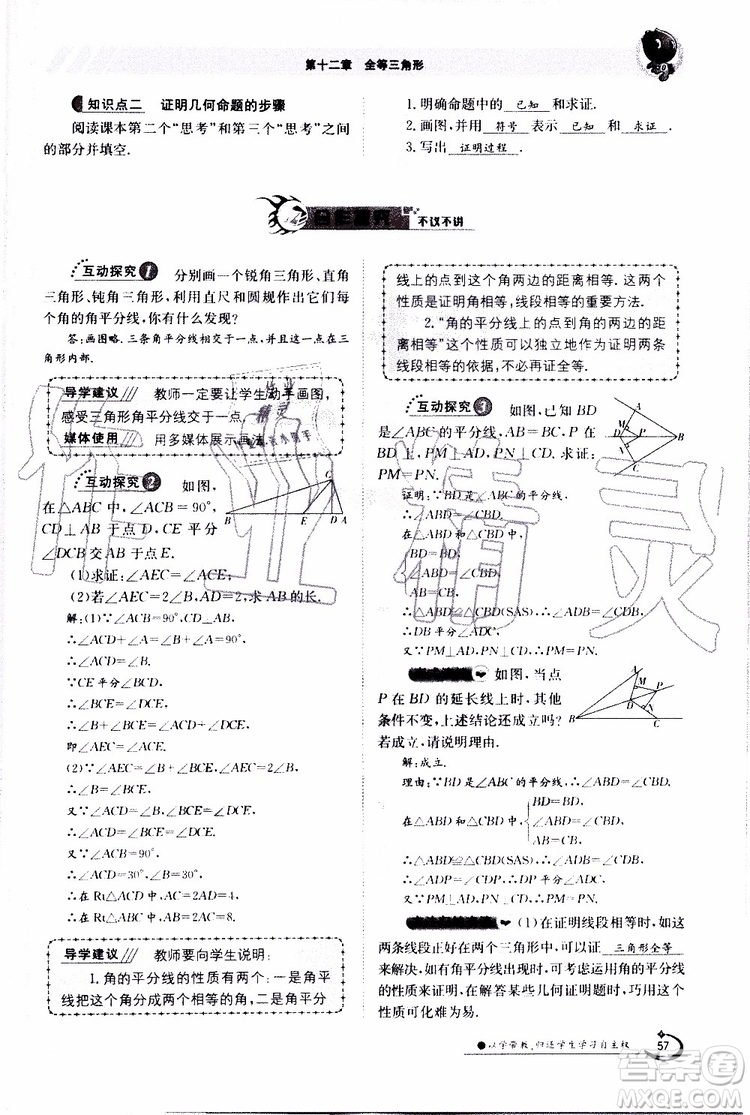 第十二章　全等三角形
知识点二　证明几何命题的步骤
阅读课本第二个“思考”和第三个“思考”之间
的部分并填空.
1.明确命题中的 已知 和求证.
2.画图,并用 符号 表示 已知 和 求证 .
3.写出 证明过程 .
不议不讲
互动探究1　分别画一个锐角三角形、直角
三角形、钝角三角形,利用直尺和圆规作出它们每
个角的角平分线,你有什么发现?
答:画图略.三条角平分线相交于一点,并且这一点在三
角形内部.
导学建议　教师一定要让学生动手画图,
感受三角形角平分线交于一点.
媒体使用　用多媒体展示画法.
互动探究2　如图,
在△ABC中,∠ACB=90°,
CD⊥AB于点D,CE平分
∠DCB交AB于点E.
(1)求证:∠AEC=∠ACE;
(2)若∠AEC=2∠B,AD=2,求AB的长.
解:(1)∵∠ACB=90°,CD⊥AB,
∴∠ACD+∠A=∠B+∠A=90°,
∴∠ACD=∠B.
∵CE平分∠BCD,
∴∠BCE=∠DCE,
∴∠B+∠BCE=∠ACD+∠DCE,
即∠AEC=∠ACE.
(2)∵∠AEC=∠B+∠BCE,∠AEC=2∠B,
∴∠B=∠BCE.
又∵∠ACD=∠B,∠BCE=∠DCE,
∴∠ACD=∠BCE=∠DCE.
又∵∠ACB=90°,
∴∠ACD=30°,∠B=30°,
∴在Rt△ACD中,AC=2AD=4,
∴在Rt△ABC中,AB=2AC=8.
导学建议　教师要向学生说明:
1.角的平分线的性质有两个:一是角平
分线把这个角分成两个相等的角,二是角平分
线上的点到这个角两边的距离相等.这两个
性质是证明角相等,线段相等的重要方法.
2.“角的平分线上的点到角的两边的距
离相等”这个性质可以独立地作为证明两条
线段相等的依据,不必再证全等.
互动探究3　如图,已知BD
是∠ABC的平分线,AB=BC,P在
BD上,PM⊥AD,PN⊥CD.求证:
PM=PN.
证明:∵BD是∠ABC的平分线,
∴∠ABD=∠CBD.
在△ABD和△CBD中,
BD=BD,
∠ABD=∠CBD,
AB=CB,
∴△ABD≌△CBD(SAS),∴∠ADB=∠CDB,
∴DB平分∠ADC,
又∵PM⊥AD,PN⊥CD,∴PM=PN.
如图,当点
P在BD的延长线上时,其他
条件不变,上述结论还成立吗?
若成立,请说明理由.
解:成立.
理由:∵BD是∠ABC的平分线,∴∠ABD=∠CBD.
在△ABD和△CBD中,
BD=BD,
∠ABD=∠CBD,
AB=CB,
∴△ABD≌△CBD(SAS),∴∠ADB=∠CDB,
∴∠ADP=∠CDP,
又∵PM⊥AD,PN⊥CD,∴PM=PN.
(1)在证明线段相等时,如这
两条线段正好在两个三角形中,可以证 三角形全等
来解决,如有角平分线出现时,可运用角的平分线
的性质来证明,在解答某些几何证明题时,巧用这个
性质可化难为易.
以学带教,归还学生学习自主权
57
作业精灵
答案圈